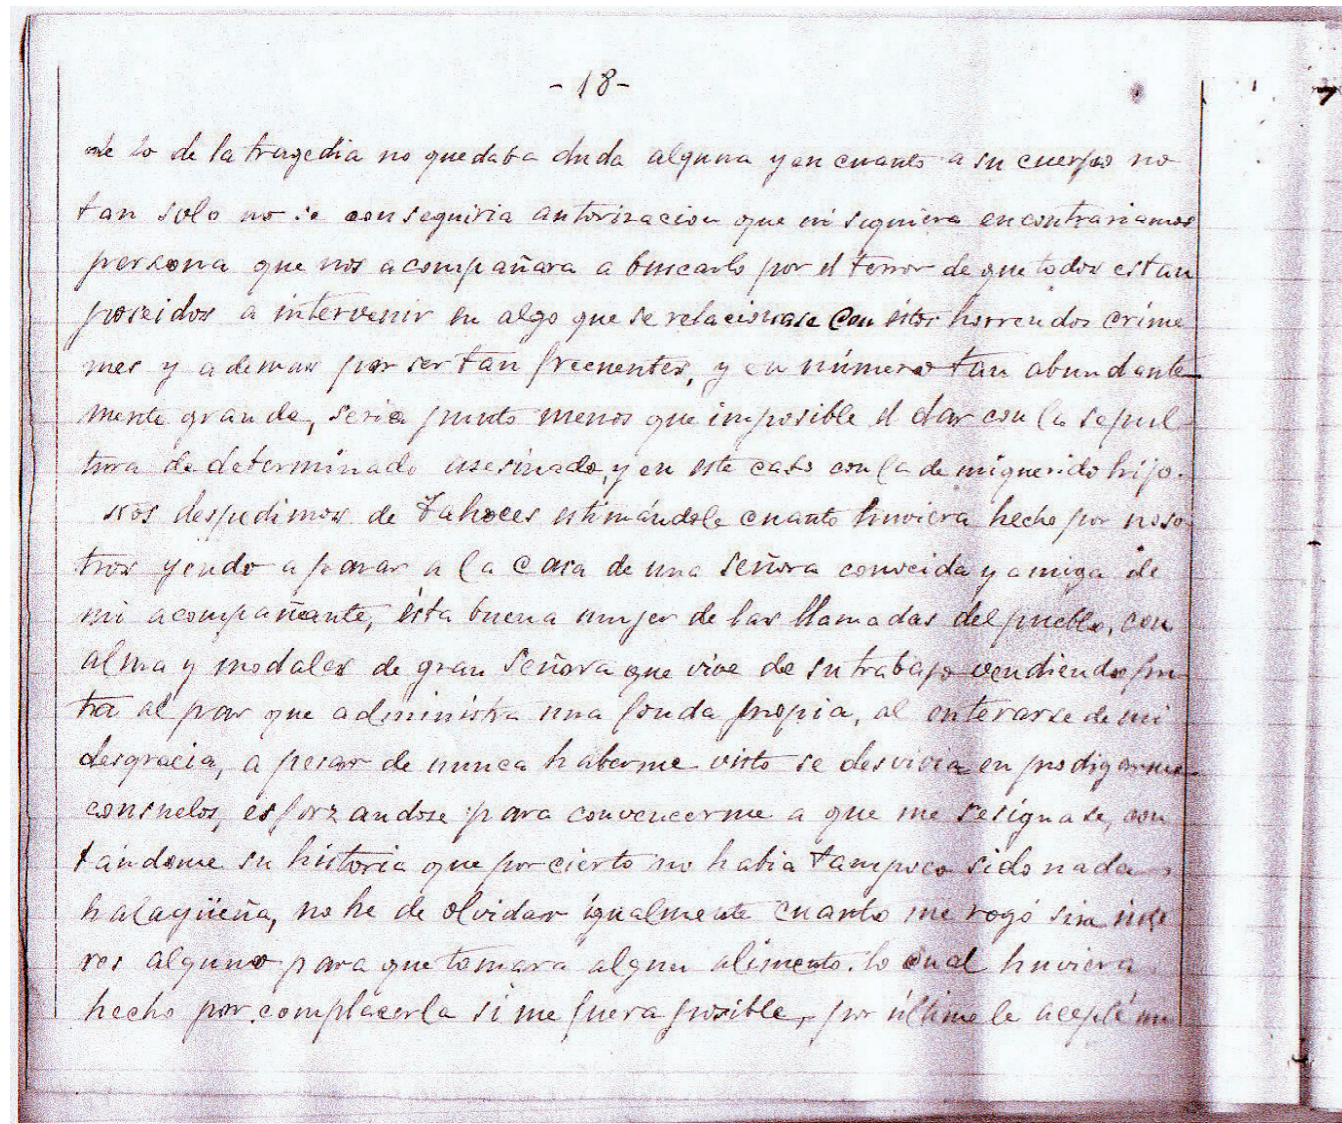 -18-
de lo de la tragedia no quedaba duda alguna y en cuanto a su cuerpo no
tan solo no se conseguiria autorizacion que ni siquiera encontrariamos
persona que nos acompañara a buscarlo por el terror de que todos estan
poseidos a intervenir en algo que se relacionase con estos horrendos crime
nes y ademas por ser tan frecuentes, y en número tan abundante
mente grande, seria punto menos que imposible el dar con la sepul
tura de determinado asesinado, y en este caso con la de mi querido hijo.
Nos despedimos de Tahoces estimándole cuanto huviera hecho por noso
tros yendo a parar a la casa de una señora conocida y amiga de
mi acompañante, ésta buena mujer de las llamadas del pueblo, con
alma y modales de gran señora que vive de su trabajo vendiendo fru
ta al par que administra una fonda propia, al enterarse de mi
desgracia, a pesar de nunca haberme visto se desvivia en prodigarme
consuelos, esforzandose para convencerme a que me resignase, con
tándome su historia que por cierto no habia tampoco sido nada
halagüeña, no he de olvidar igualmente cuanto me rogó sin inte
res alguno para que tomara algun alimento. lo cual huviera
hecho por complacerla si me fuera posible, por último le acepté un